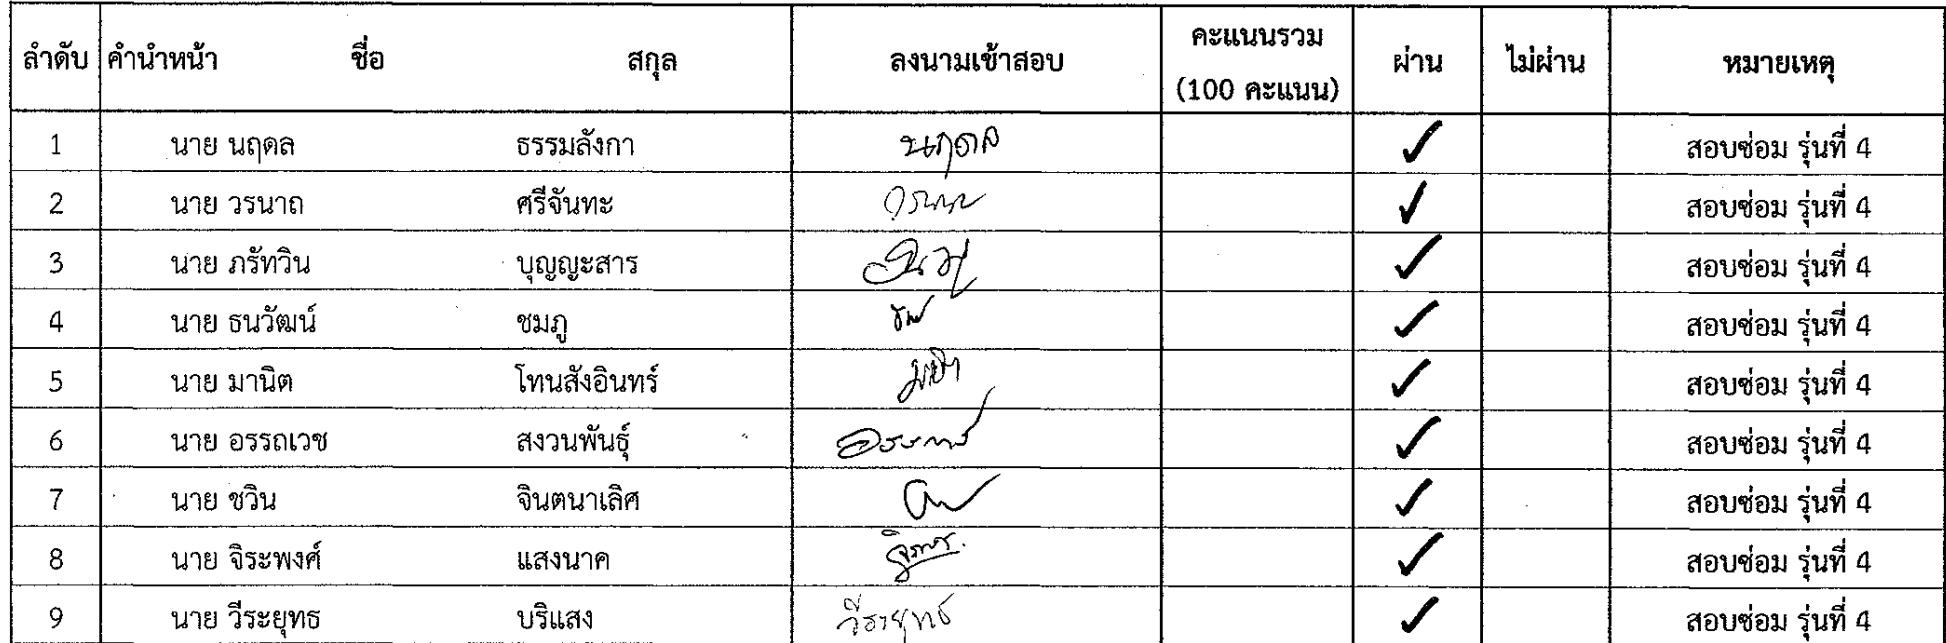 ลำดับ คำนำหน้า ชื่อ สกุล ลงนามเข้าสอบ คะแนนรวม (100 คะแนน) ผ่าน ไม่ผ่าน หมายเหตุ
1 นาย นฤดล ธรรมลังกา นฤดล ✓ สอบซ่อม รุ่นที่ 4
2 นาย วรนาถ ศรีจันทะ ✓ สอบซ่อม รุ่นที่ 4
3 นาย ภรัทวิน บุญญะสาร ✓ สอบซ่อม รุ่นที่ 4
4 นาย ธนวัฒน์ ชมภู ✓ สอบซ่อม รุ่นที่ 4
5 นาย มานิต โทนสังอินทร์ ✓ สอบซ่อม รุ่นที่ 4
6 นาย อรรถเวช สงวนพันธุ์ ✓ สอบซ่อม รุ่นที่ 4
7 นาย ชวิน จินตนาเลิศ ✓ สอบซ่อม รุ่นที่ 4
8 นาย จิระพงศ์ แสงนาค ✓ สอบซ่อม รุ่นที่ 4
9 นาย วีระยุทธ บริแสง วีระยุทธ ✓ สอบซ่อม รุ่นที่ 4